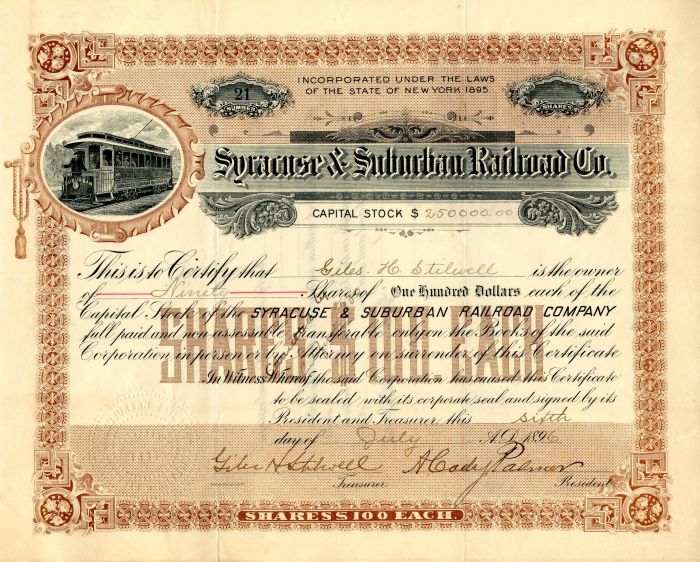 INCORPORATED UNDER THE LAWS
OF THE STATE OF NEW YORK 1895.
21
NUMBER
SHARES
Syracuse & Suburban Railroad Co.
CAPITAL STOCK $ 250000.00
This is to Certify that Giles H. Stilwell is the owner
of Ninety Shares of One Hundred Dollars each of the
Capital Stock of the SYRACUSE & SUBURBAN RAILROAD COMPANY
full paid and non assessable transferable only on the Books of the said
Corporation in person or by Attorney on surrender of this Certificate
SHARES $100. EACH
In Witness Whereof, the said Corporation has caused this Certificate
to be sealed with its corporate seal and signed by its
President and Treasurer, this sixth
day of July A.D. 1896
Giles H Stilwell A Cady Palmer
Treasurer. President.
SHARES $100 EACH.